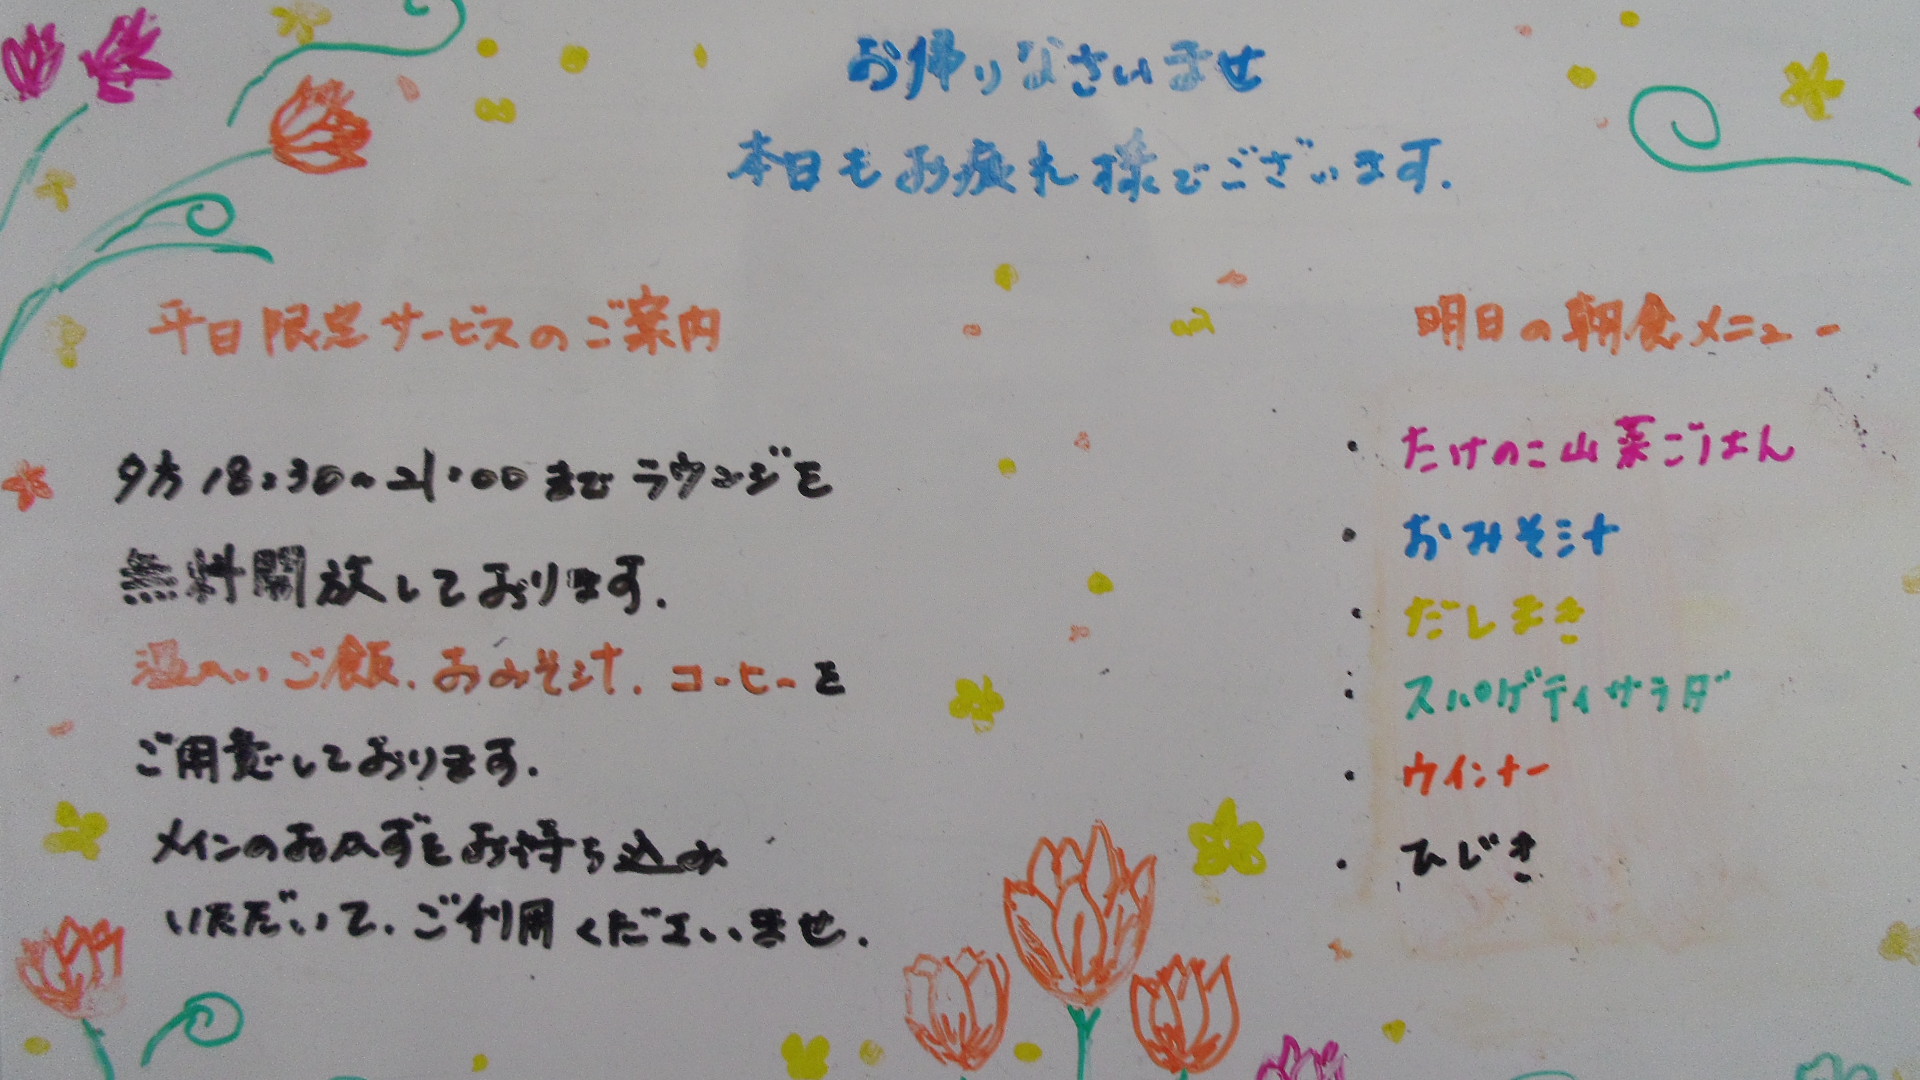 お帰りなさいませ
本日もお疲れ様でございます.
平日限定サービスのご案内
夕方 18:30~21:00 まで ラウンジを
無料開放しております.
温かいご飯.おみそ汁.コーヒーを
ご用意しております.
メインのおかずをお持ち込み
いただいて.ご利用くださいませ.
明日の朝食メニュー
・たけのこ山菜ごはん
・おみそ汁
・だしまき
・スパゲティサラダ
・ウインナー
・ひじき